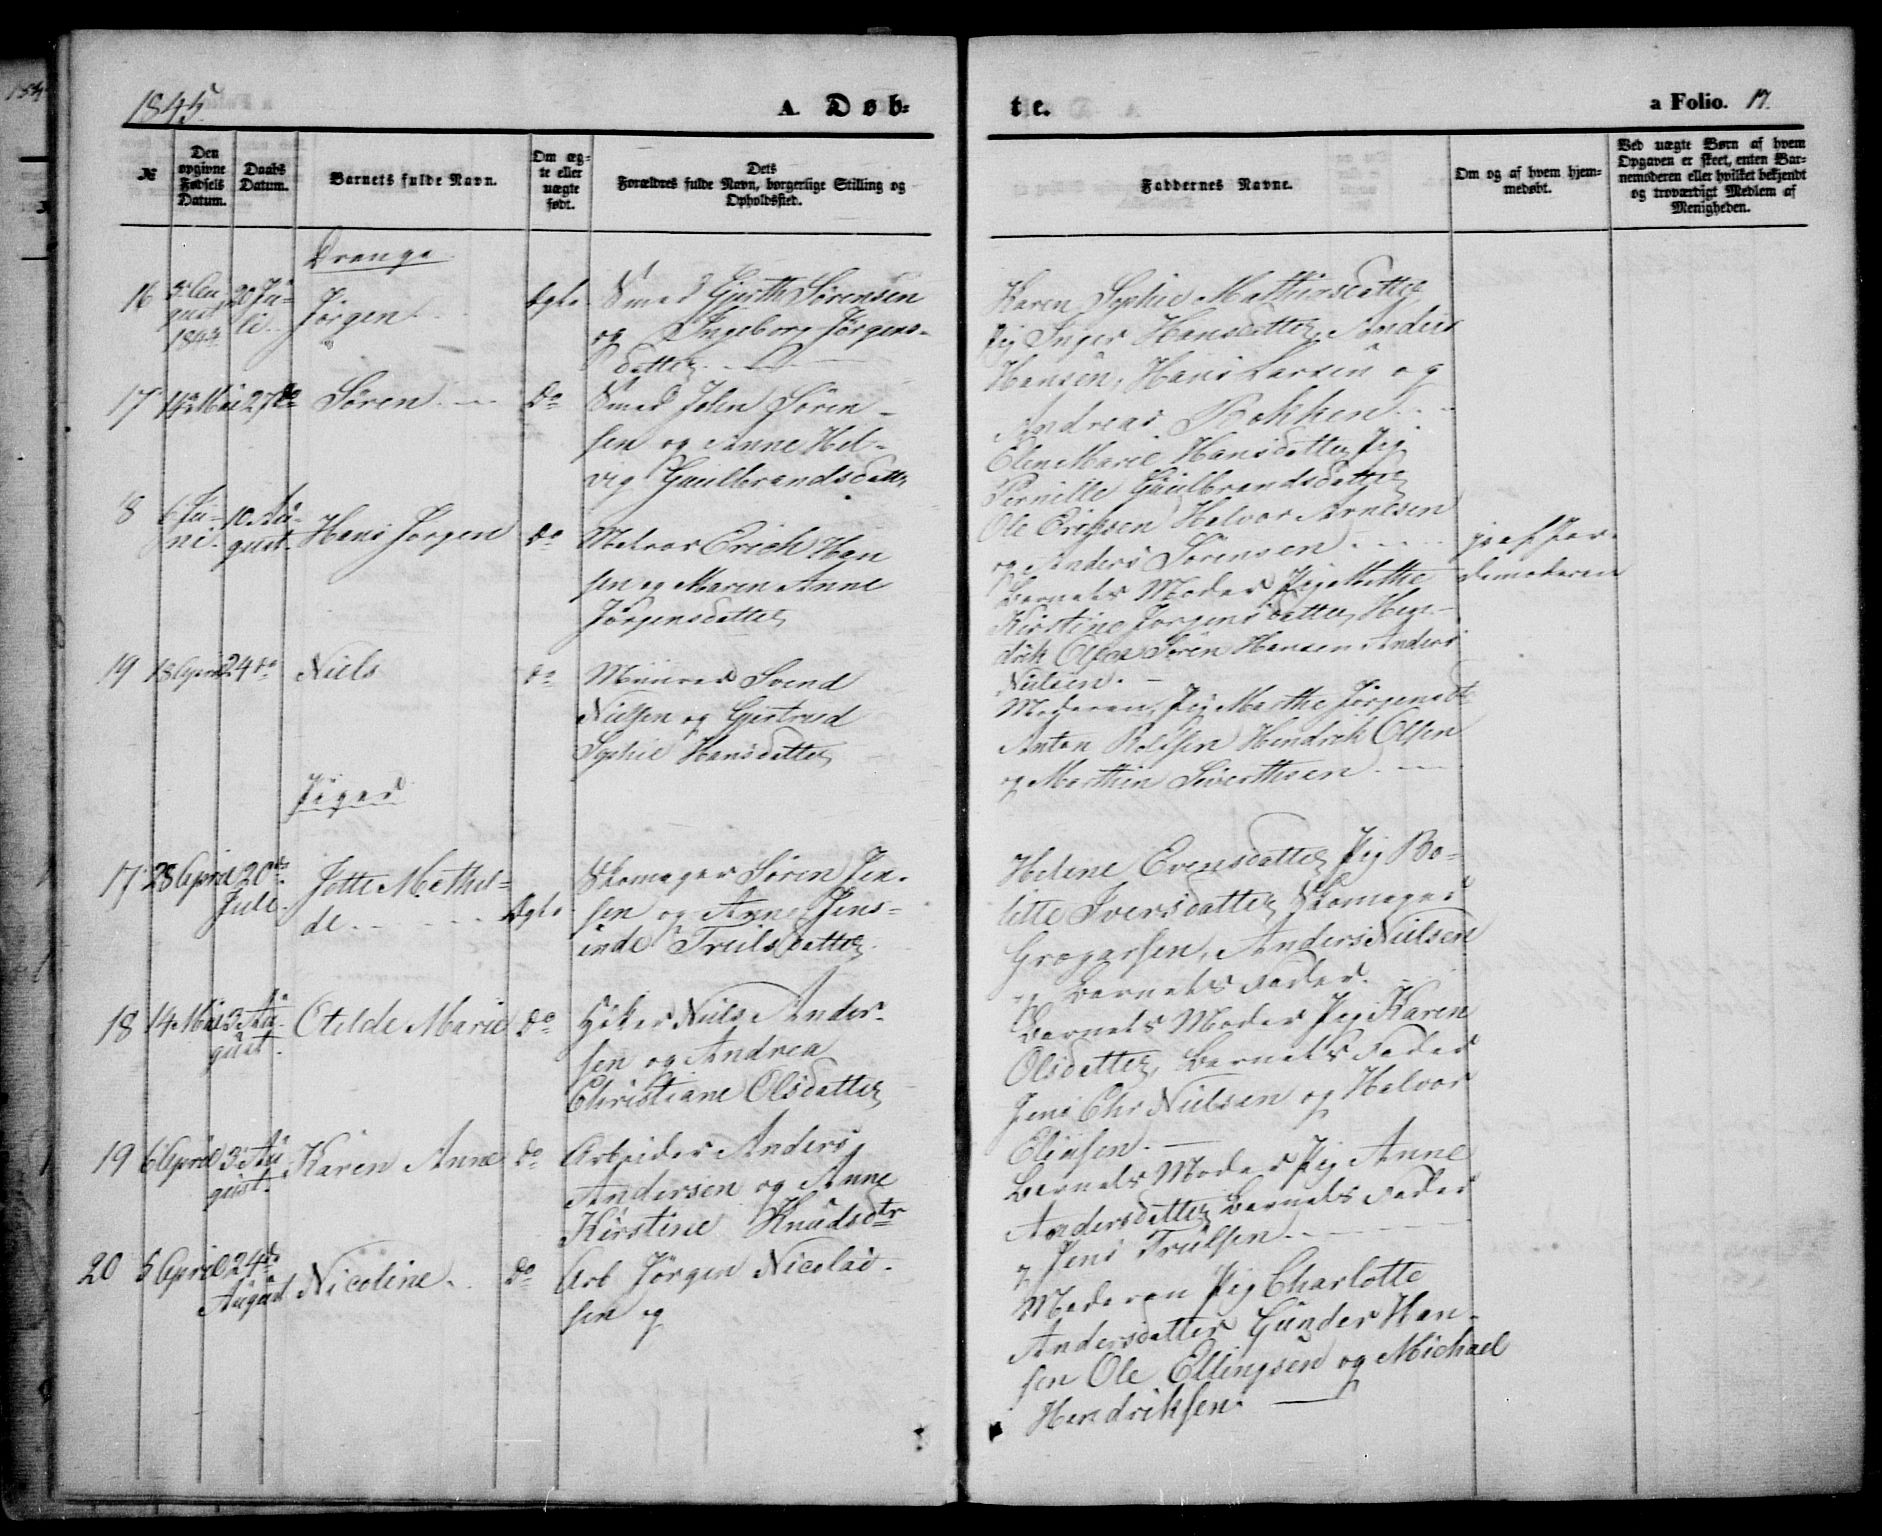 1845.
A. Døb-
te.
a Folio. 17.
№
Den
opgivne
Fødsels
Datum.
Daabs
Datum.
Barnets fulde Navn.
Om æg-
te eller
uægte
født.
Dets
Forældres fulde Navn, borgerlige Stilling og
Opholdssted.
Faddernes Navne.
Om og af hvem hjem-
medøbt.
Ved uægte Børn af hvem
Opgaven er skeet, enten Bar-
nemoderen eller hvilket bekjendt
og troværdigt Medlem af
Menigheden.
Drenge
16
3 Au-
gust
1844
20 Ju-
li
Jørgen
Ægte
Smed Gjerth Sørensen
og Ingeborg Jørgens-
datter
Karen Sophie Mathiasdatter
Pig Inger Hansdatter, Anders
Hansen, Hans Larsen og
Andreas Bokken
17
14 Mai
27 do
Søren
Do
Smed John Søren-
sen og Anne Hel-
vig Gulbrandsdatter
Elen Marie Hansdatter Pig
Pernille Gulbrandsdatter
Ole Eriksen Halvor Arnesen
og Anders Sørensen
18
6 Ju-
ni
10 Au-
gust
Hans Jørgen
Do
Matros Erich Han
sen og Maren Anne
Jørgensdatter
Barnets Moder Pig Mette
Kirstine Jørgensdatter Hen-
drik Olsen Søren Hansen Anders
Nielsen.
Jordemoderen
19
18 April
24 do
Niels
do
Muurer Svend
Nielsen og Gjertrud
Sophie Hansdatter
Moderen, Pig Marthe Jørgensdt
Anton Rolfsen Hendrik Olsen
og Marthin Siverthsen
Piger
17
28 April
20de
Juli
Jotte Methil-
de
Ægte
Skomager Søren Jen-
sen og Anne Jens-
inde Trulsdatter
Helene Evensdatter Pig Bo-
lette Iversdatter Skomager
Gregersen, Anders Nielsen
og Barnets Fader.
18
14 Mai
3 Au-
gust.
Otelde Marie
Do
Høker Niels Ander-
sen og Andrea
Christiane Olsdatter
Barnets Moder Pig Karen
Olsdatter, Barnets Fader
Jens Chr Nielsen og Halvor
Eliasen.
19
6 April
3 Au-
gust.
Karen Anne
do
Arbeider Anders
Andersen og Anne
Kirstine Knudsdtr
Barnets Moder Pig Anne
Andersdatter Barnets Fader
og Jens Trulsen
20
5 April
24de
August
Nicoline
Do
Arb Jørgen Nicolai-
sen og
Moderen Pig Charlotte
Andersdatter Gunder Han-
sen Ole Ellingsen og Michael
Hendriksen.